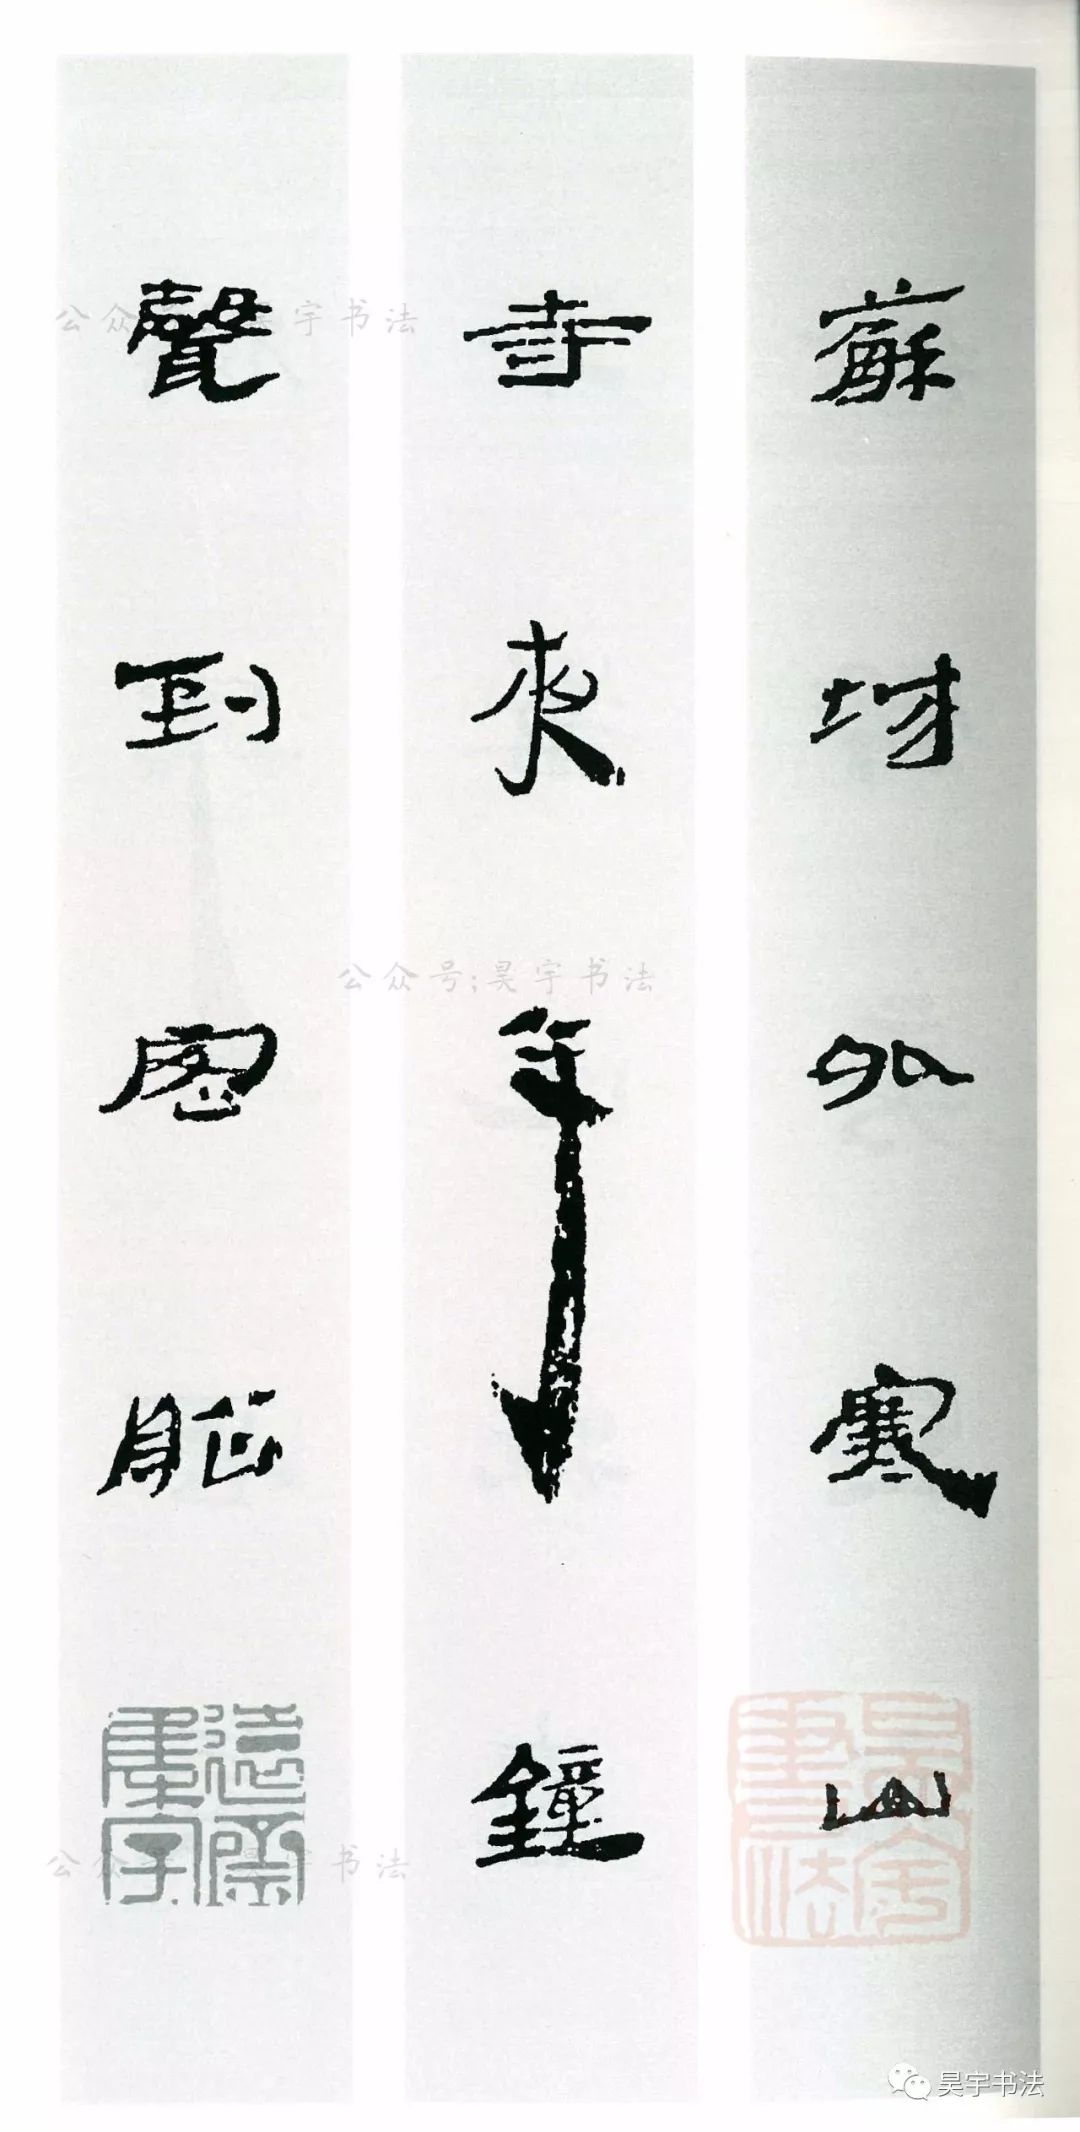 蘇城外寒山
寺夜半鐘
聲到客船
遠齋集字
昊宇書法
公众号:昊宇书法
公众号:昊宇书法
公众号:昊宇书法
昊宇书法